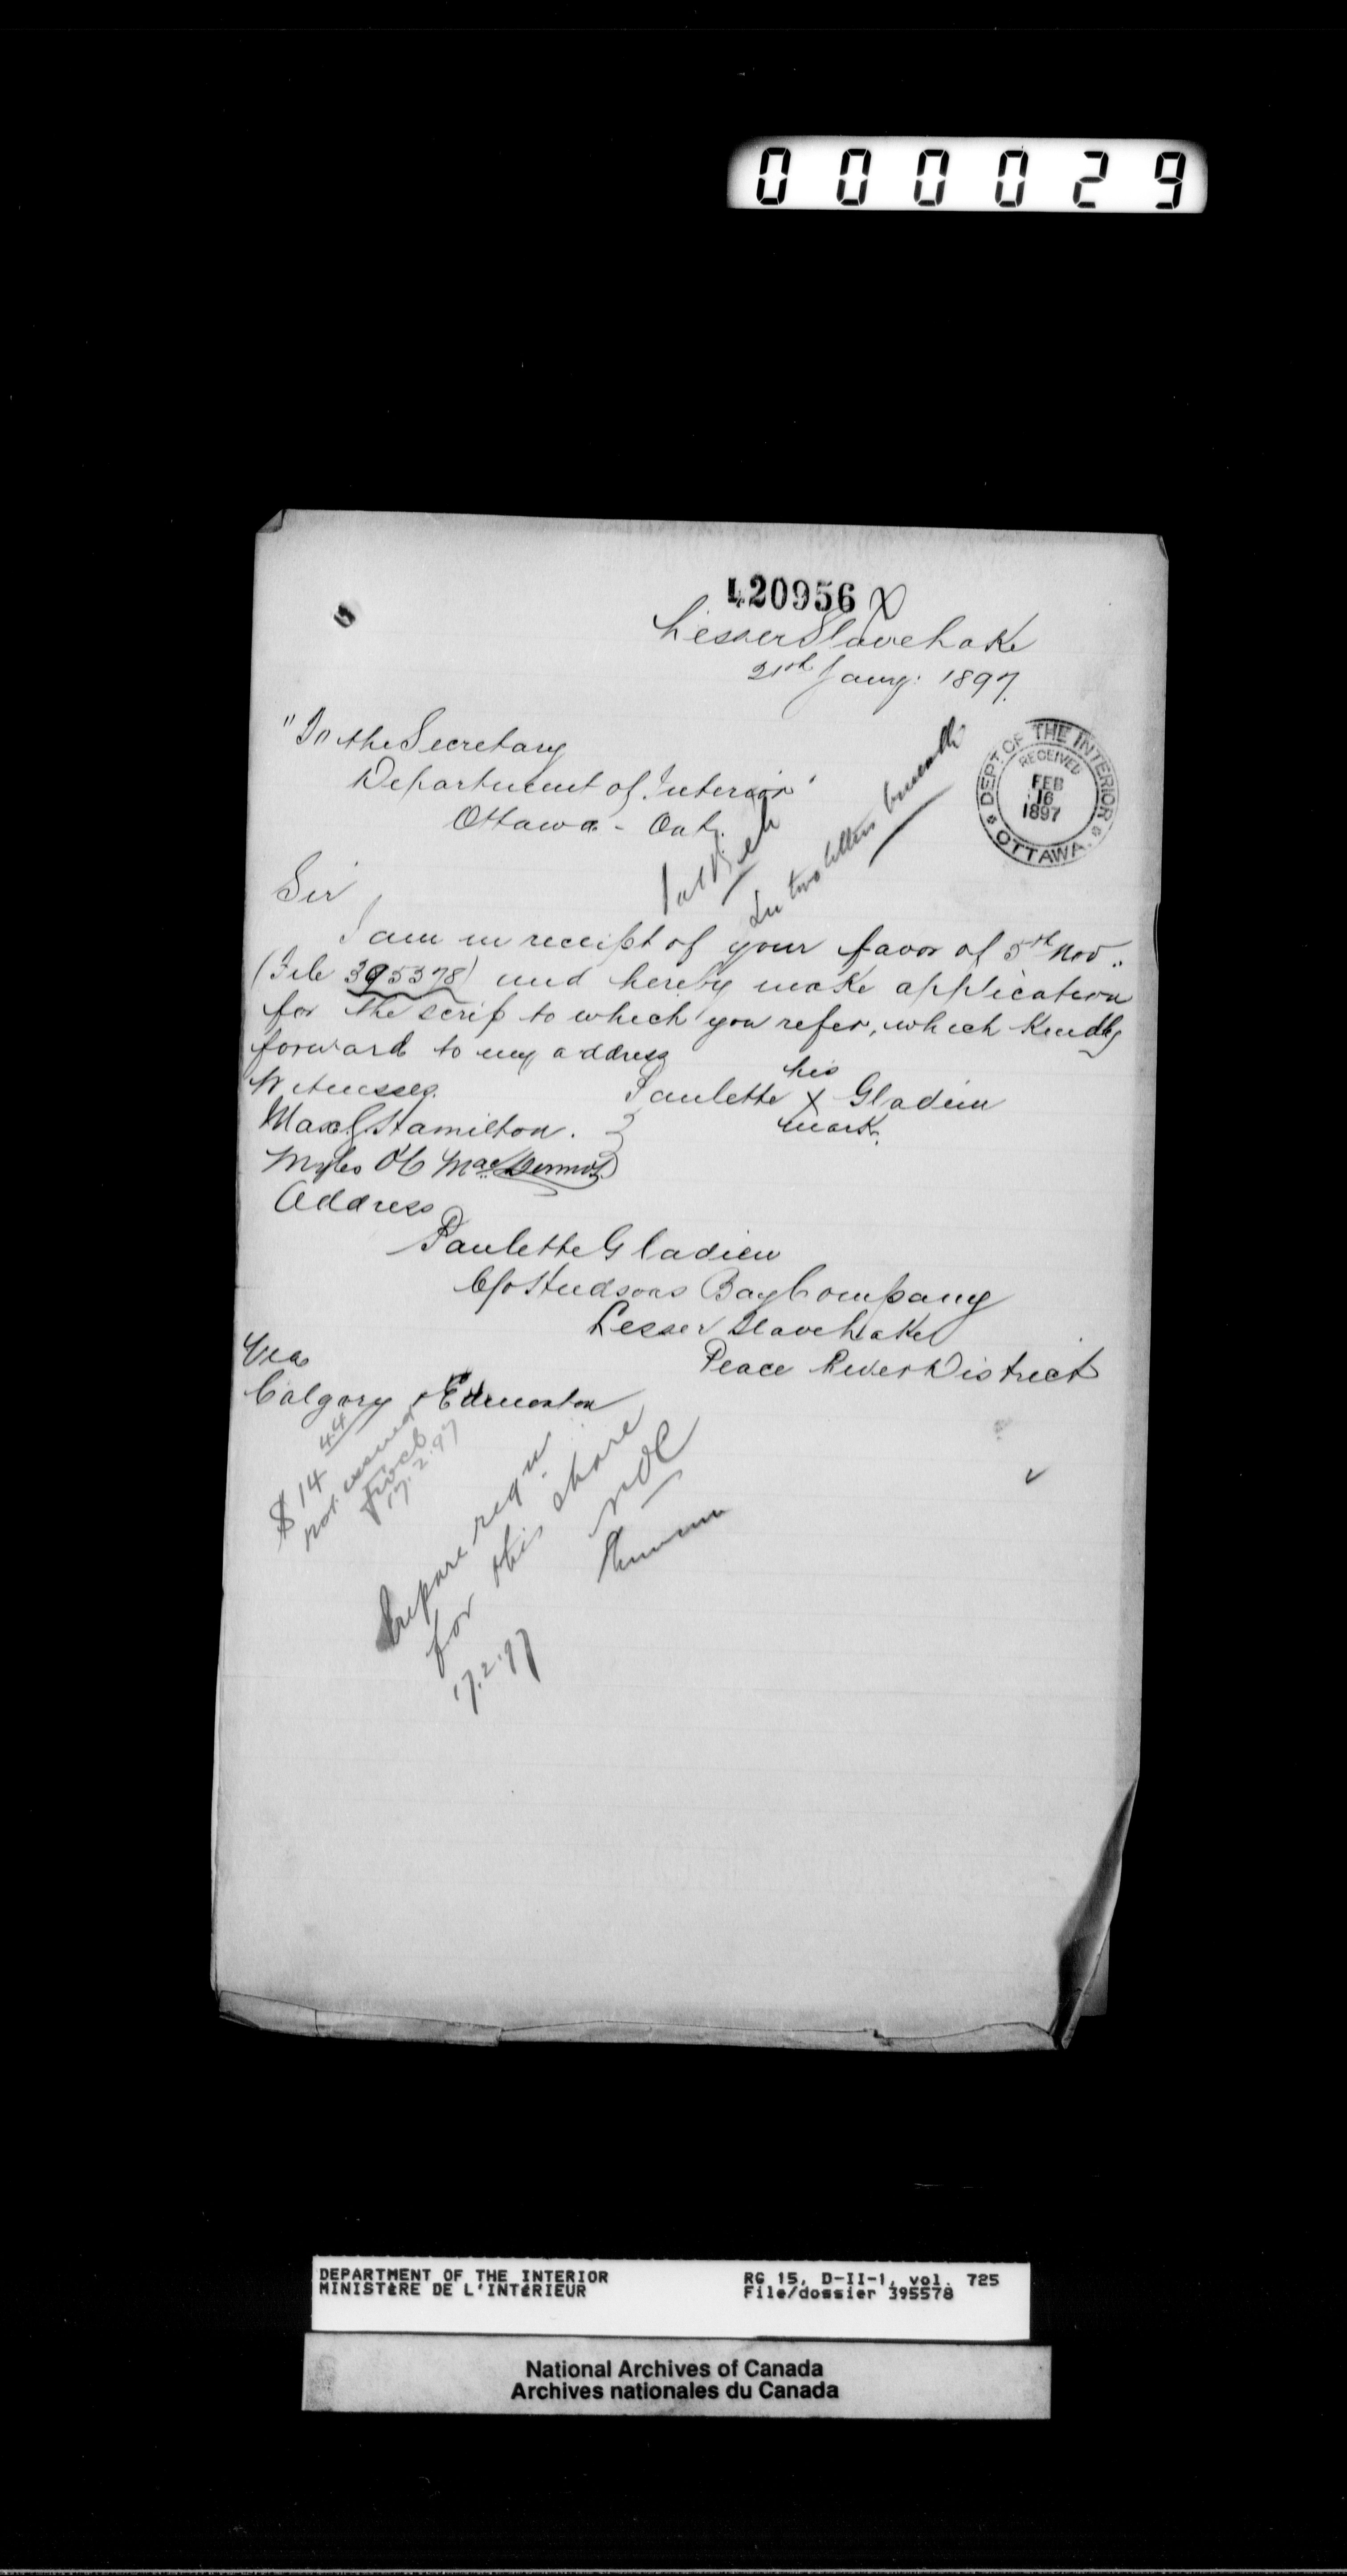 000029
420956 X
Lesser Slave Lake
21th Jany: 1897.
"To the Secretary
Department of Interior'
Ottawa - Ont.
DEPT. OF THE INTERIOR
RECEIVED
FEB
16
1897
OTTAWA.
In two letters beneath
Sir
I am in receipt of your favor of 5th Nov..
(File 395578) and hereby make application
for the scrip to which you refer, which Kindly
forward to my address
Witnesses.
his
Paulette X Gladieu
mark.
Hamilton.
Myles
Address
Paulette Gladieu
C/o Hudsons Bay Company
Lesser Slave Lake
Peace River District
Via
Calgary & Edmonton
$14 44
not issued
17.2.97
Prepare reqn
for this share
17.2.97
DEPARTMENT OF THE INTERIOR
MINISTÈRE DE L'INTÉRIEUR
RG 15, D-II-1, vol. 725
File/dossier 395578
National Archives of Canada
Archives nationales du Canada